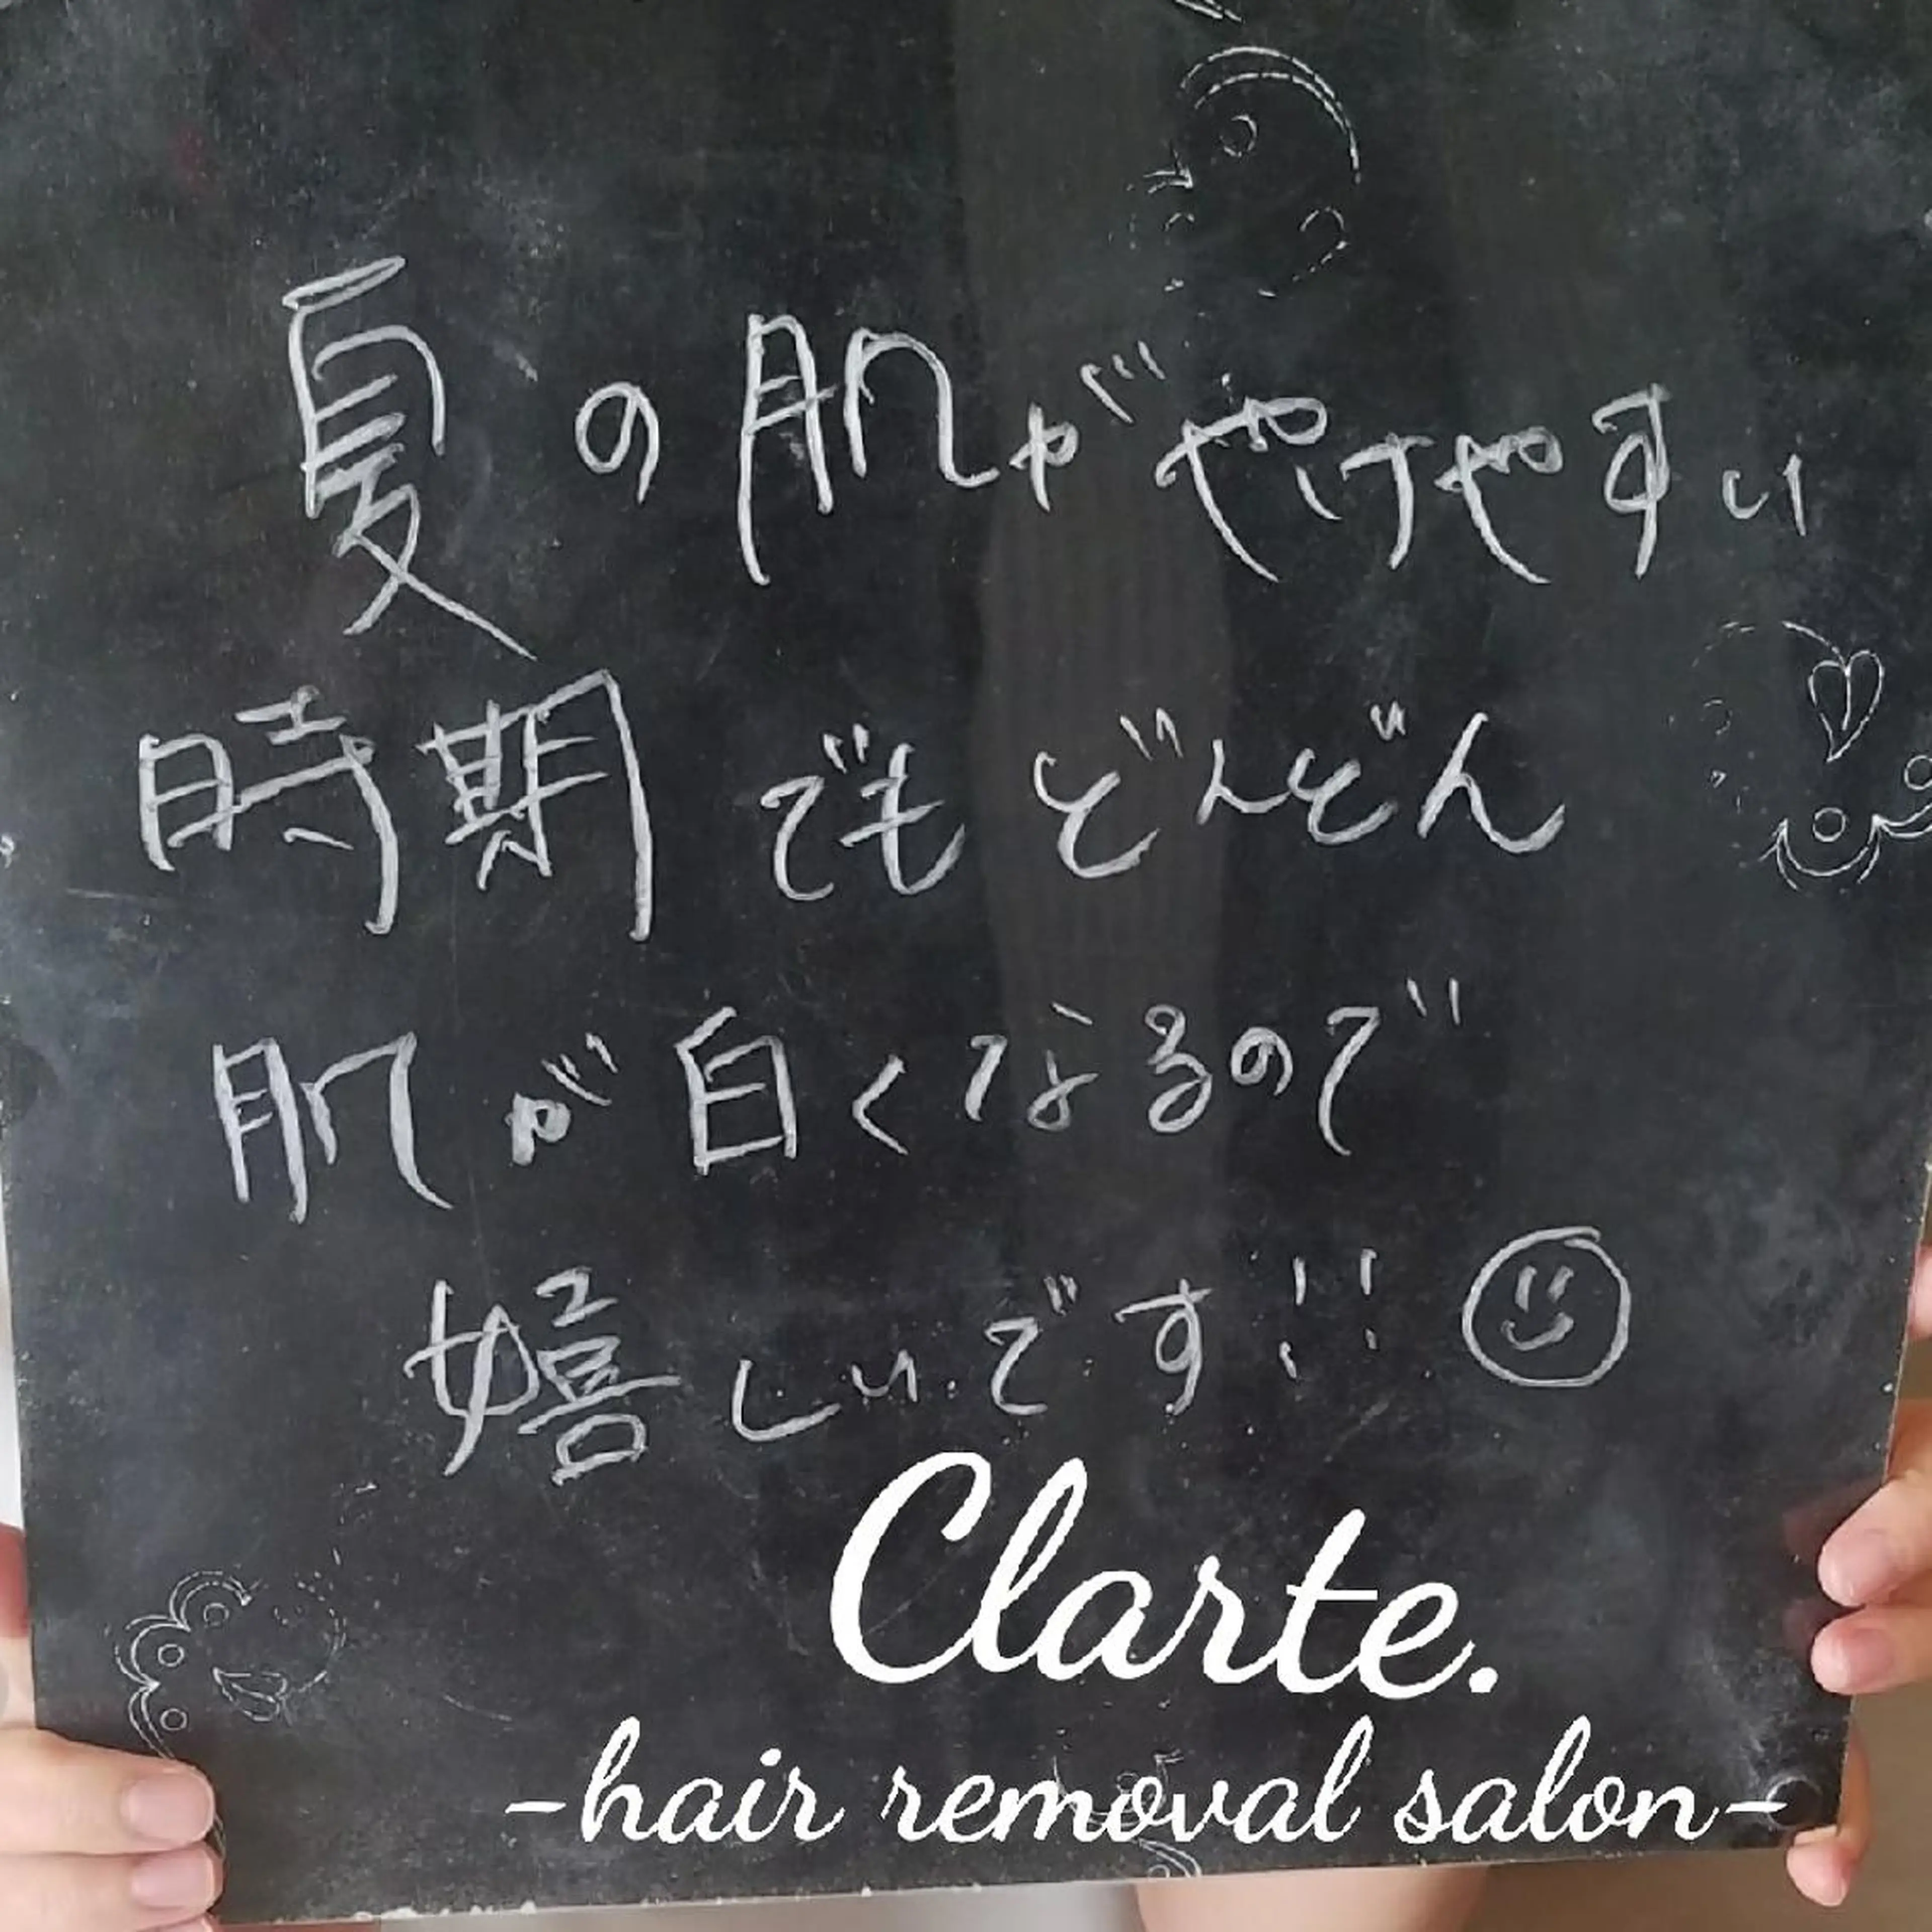 夏の肌がやけやすい
時期でもどんどん
肌が白くなるので
嬉しいです!!
Clarte.
-hair removal salon-